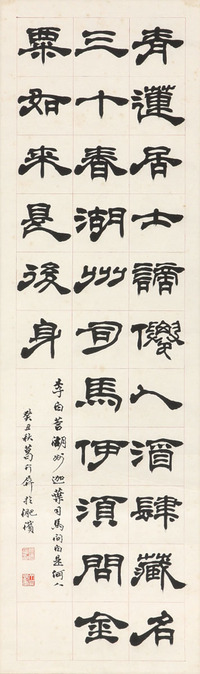 青蓮居士謫僊人酒肆藏名
三十春湖州司馬伊須問金
粟如来是後身
李白答湖州迦葉司馬问白是何人
癸丑秋葛介屏於肥濱